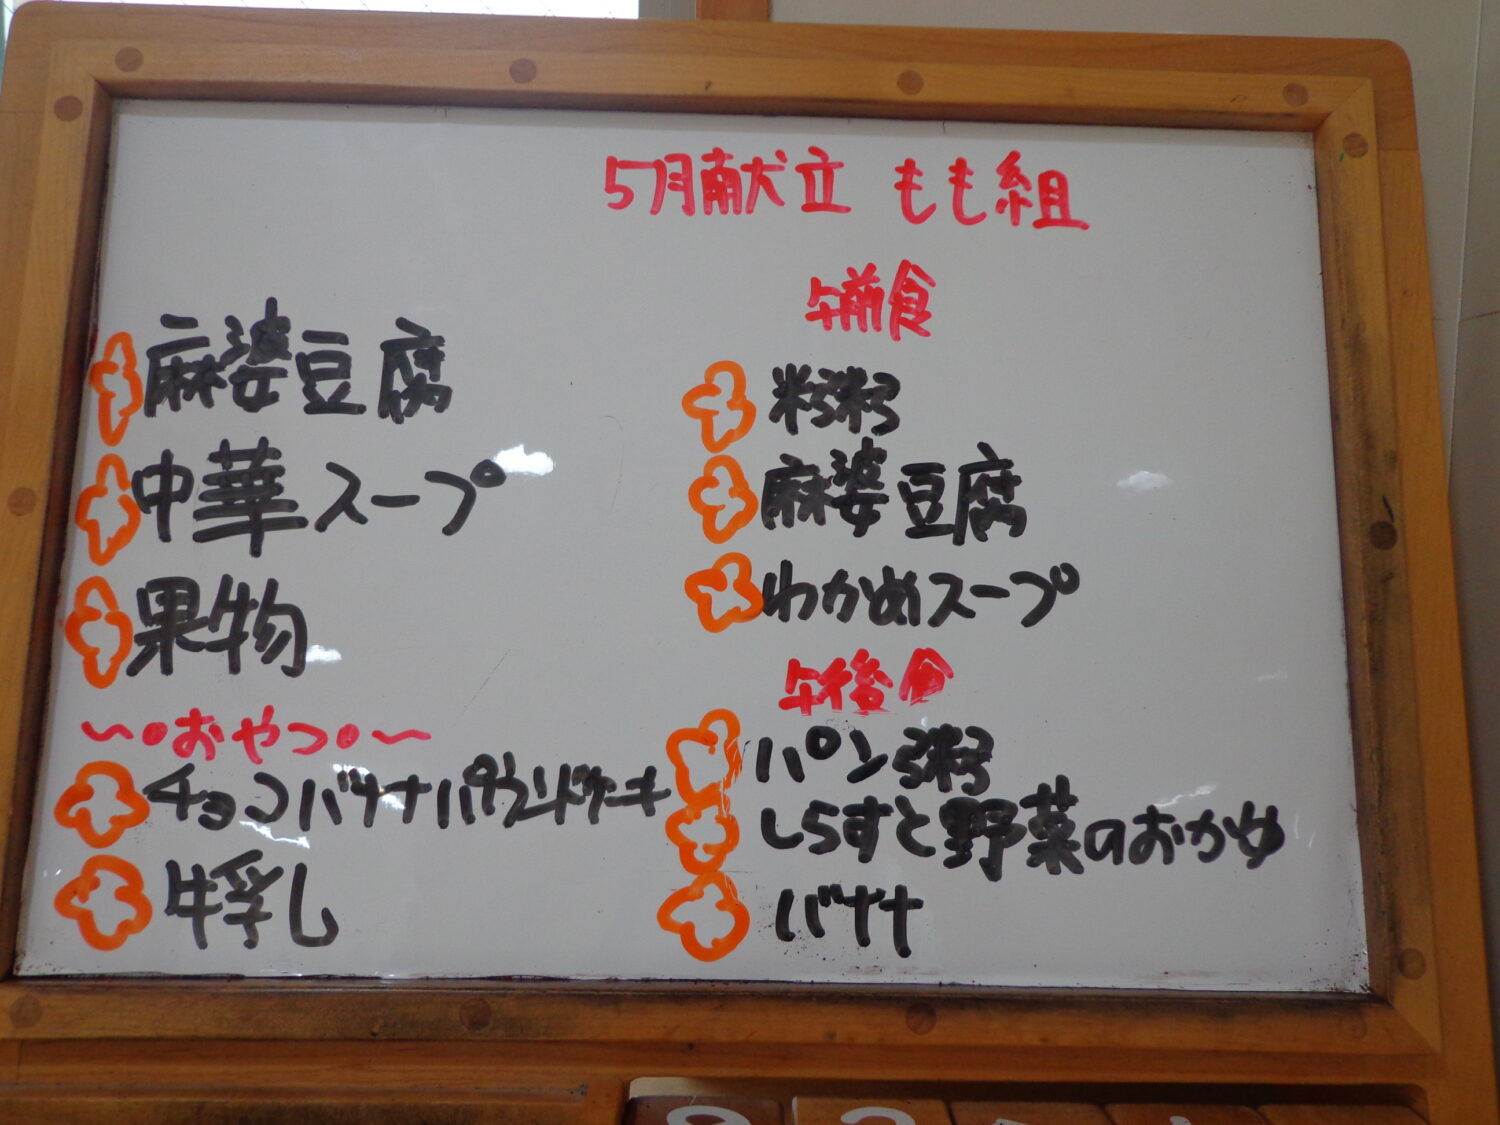 5月献立 もも組
麻婆豆腐
中華スープ
果物
～●おやつ●～
チョコバナナパウンドケーキ
牛乳し
午前食
粥
麻婆豆腐
わかめスープ
午後食
パン粥
しらすと野菜のおかゆ
バナナ